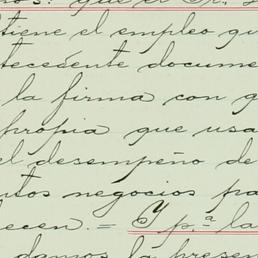 nos: que el Sr.
tiene el empleo qu
tecedente docume
la firma con q
propia que usa
el desempeño de
ntos negocios pa
recen. = Y p.ª la
damos la presen